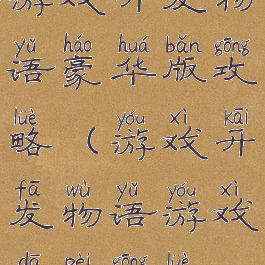 游戏开发物
yǔ háo huá bǎn gōng
语豪华版攻
lüè yóu xì kāi
略（游戏开
fā wù yǔ yóu xì
发物语游戏
dā pèi gōng lüè